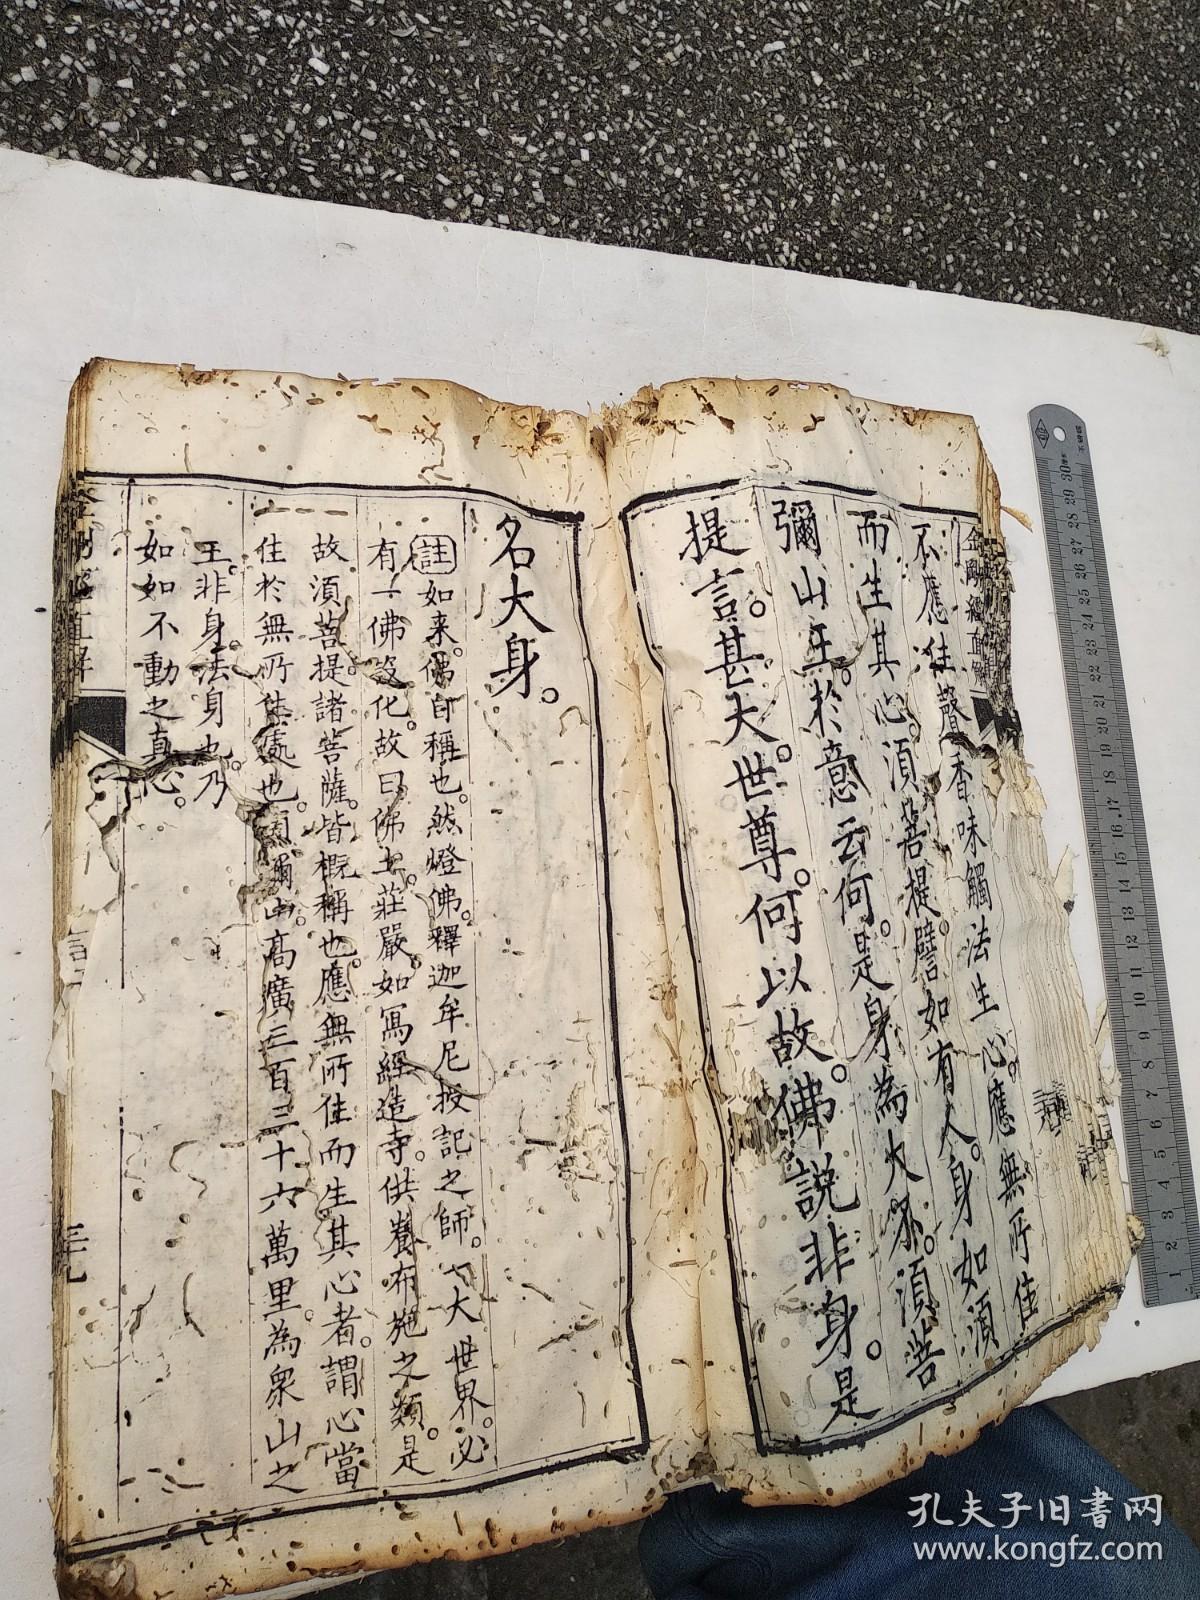 金剛經直解
不應住聲香味觸法生心。應無所住
而生其心。須菩提。譬如有人。身如須
彌山王。於意云何。是身為大不。須菩
提言。甚大。世尊。何以故。佛說非身。是
名大身。
註如來。佛自稱也。然燈佛。釋迦牟尼授記之師。一大世界。必
有一佛設化。故曰佛土。莊嚴。如寫經造寺。供養布施之類。是
故須菩提。諸菩薩。皆概稱也。應無所住而生其心者。謂心當
住於無所住處也。須彌山。高廣三百三十六萬里。為眾山之
王。非身。法身也。乃
如如不動之真心。
金剛經直解
三十九
孔夫子旧書网
www.kongfz.com